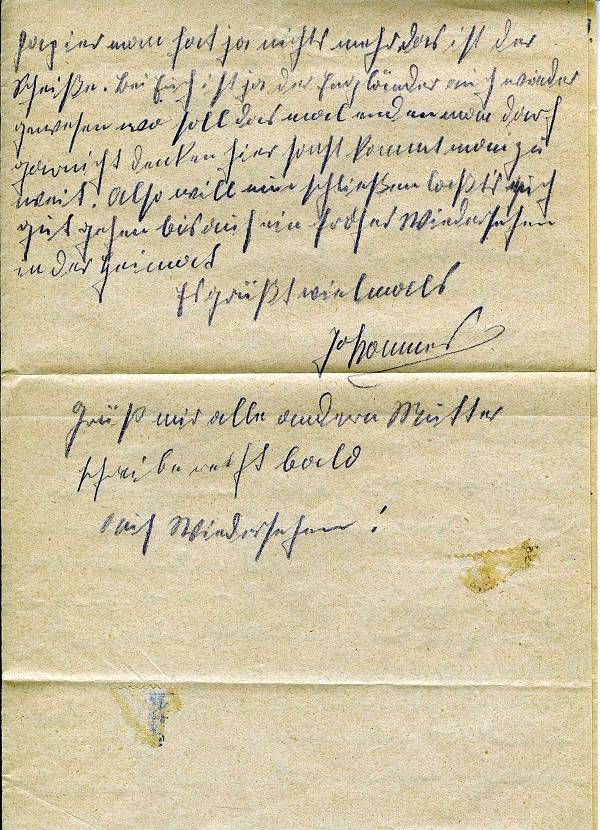 papier man hat ja nichts mehr das ist der
Scheiße. Bei Euch ist ja der Engländer auch wieder
gewesen wo soll das mal enden man darf
garnicht denken hier sonst kommt man zu
weit. Also will nun schließen laßt's euch
gut gehen bis auf ein froher Wiedersehen
in der Heimat
Es grüßt vielmals
Johannes
Grüß mir alle andern Mutter
schreibe recht bald
auf Wiedersehen!